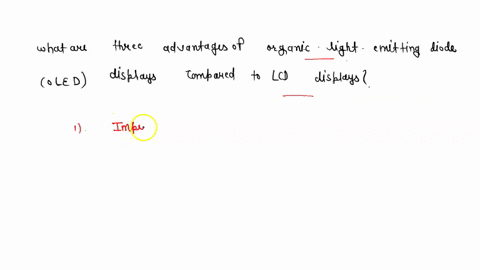 what are three advantages of organic light emitting diode
(OLED) displays compared to LCD displays?
1). Impr